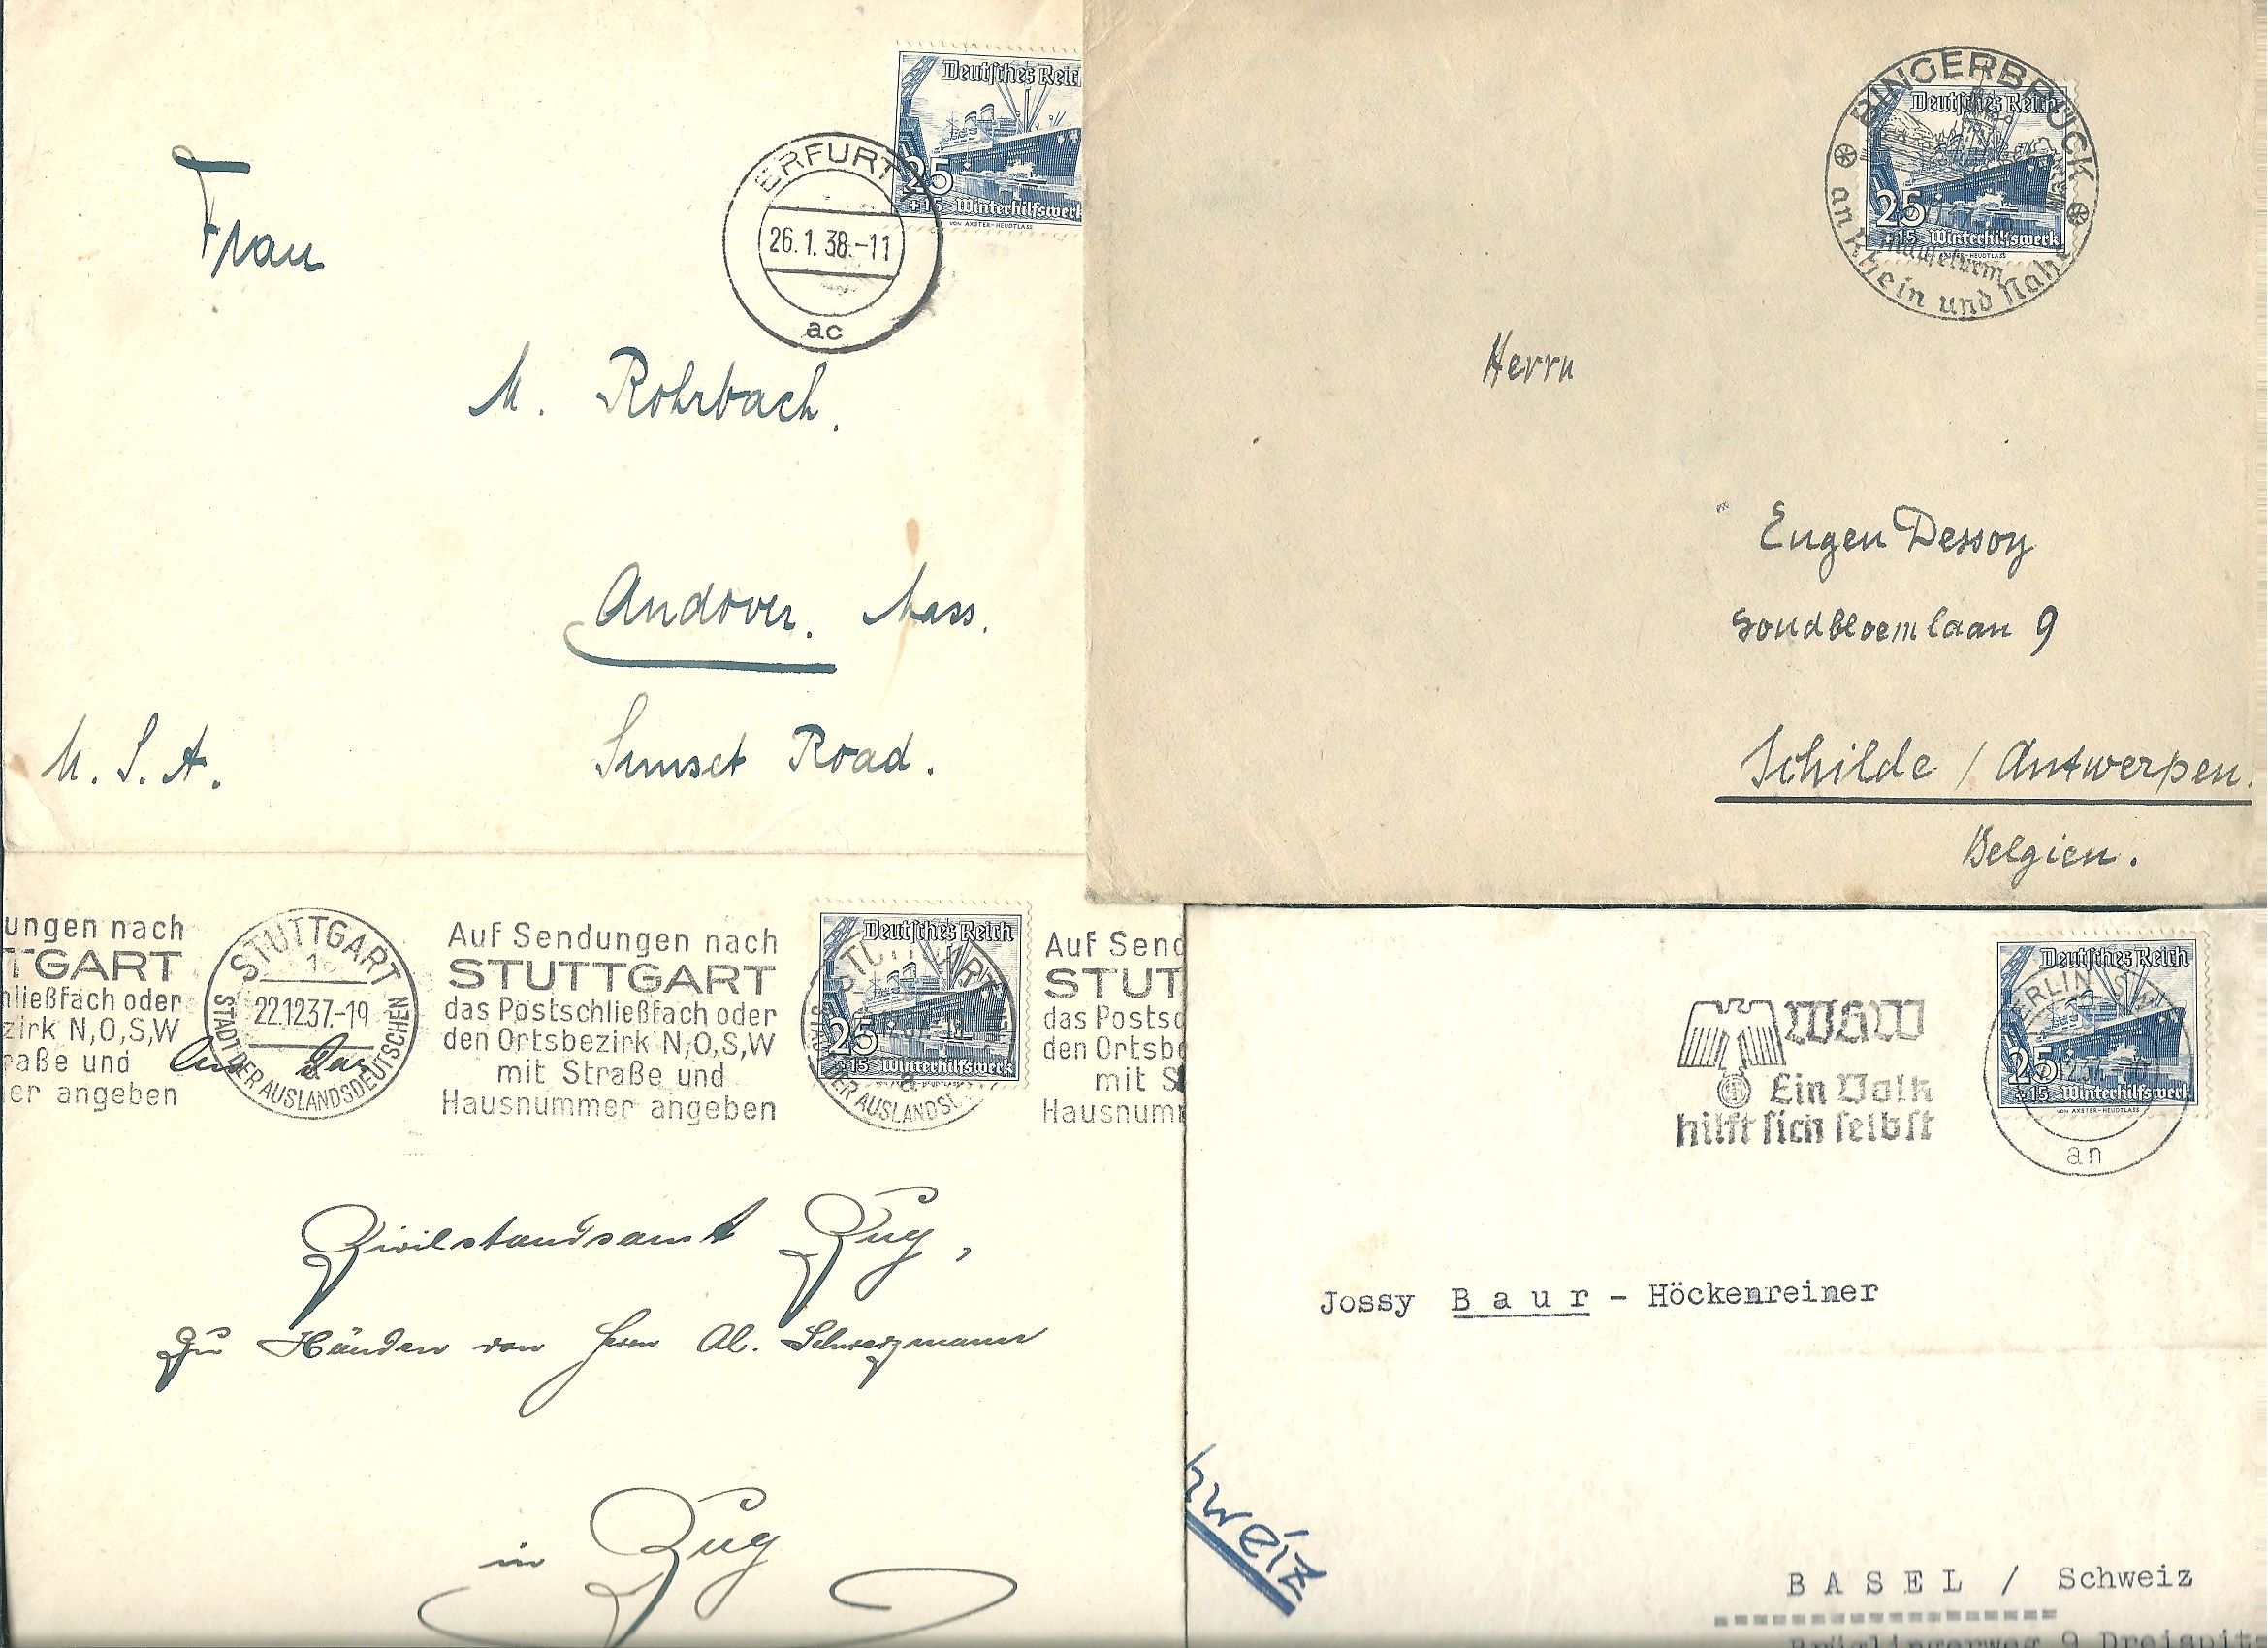 Deutsches Reich
25
+15 Winterhilfswerk
VON AXSTER-HEUDTLASS
ERFURT
26.1.38.-11
ac
Frau
M. Rohrbach.
Andover. Mass.
Sunset Road.
U. S. A.
BINGERBRÜCK
an Rhein und Nahe
Mäuseturm
Deutsches Reich
25
+15 Winterhilfswerk
AXSTER-HEUDTLASS
Herrn
Eugen Dessoy
9
Schilde / Antwerpen.
Belgien.
ungen nach
TGART
hließfach oder
zirk N,O,S,W
raße und
er angeben
STUTTGART
1
22.12.37.-19
STADT DER AUSLANDSDEUTSCHEN
Auf Sendungen nach
STUTTGART
das Postschließfach oder
den Ortsbezirk N,O,S,W
mit Straße und
Hausnummer angeben
Deutsches Reich
25
+15 Winterhilfswerk
STUTTGART
STADT DER AUSLANDSD
a
Auf Send
STUT
das Postsc
den Ortsbe
mit S
Hausnumm
Zivilstandsamt Zug,
zu Händen von Herrn Al.
in Zug
WHW
Ein Volk
hilft sich selbst
Deutsches Reich
25
+15 Winterhilfswerk
VON AXSTER-HEUDTLASS
BERLIN SW
12.37
an
Jossy Baur - Höckenreiner
hweiz
BASEL / Schweiz
Brüglingerweg 9 Dreispitz